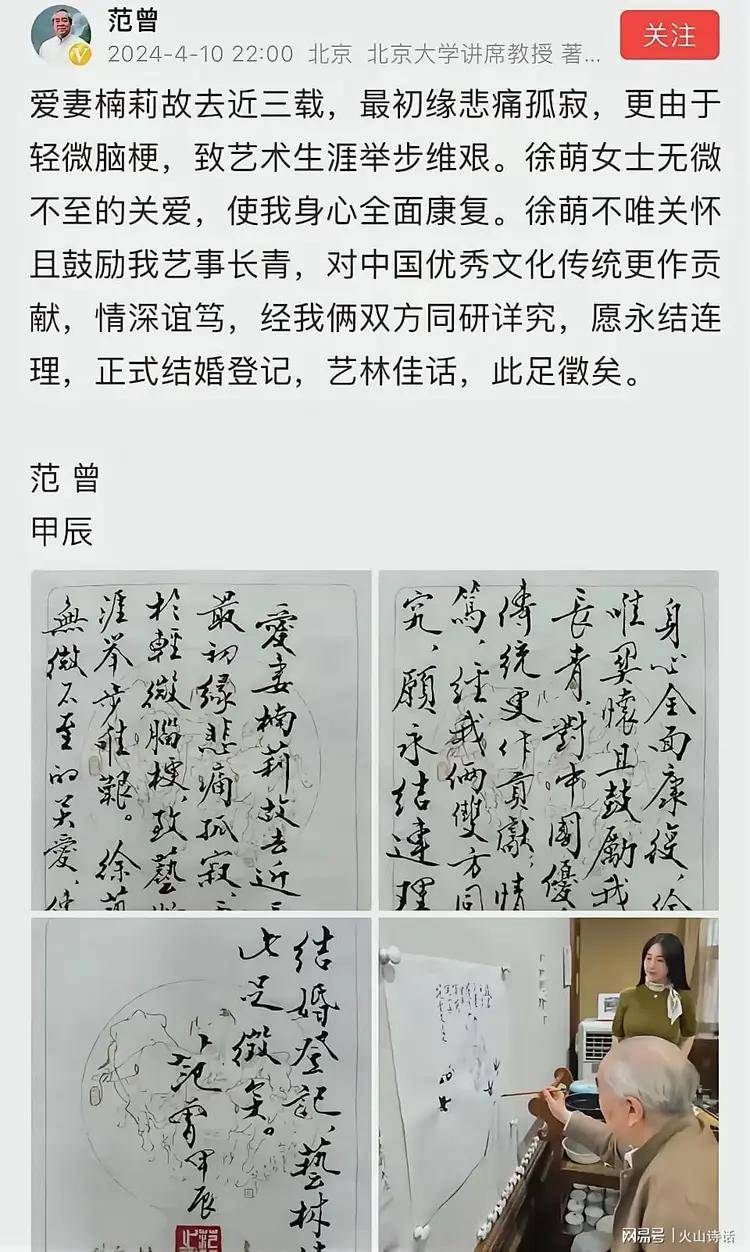 范曾
2024-4-10 22:00 北京 北京大学讲席教授 著...
关注
爱妻楠莉故去近三载，最初缘悲痛孤寂，更由于
轻微脑梗，致艺术生涯举步维艰。徐萌女士无微
不至的关爱，使我身心全面康复。徐萌不唯关怀
且鼓励我艺事长青，对中国优秀文化传统更作贡
献，情深谊笃，经我俩双方同研详究，愿永结连
理，正式结婚登记，艺林佳话，此足徵矣。
范 曾
甲辰
愛妻楠莉故去近
最初缘悲痛孤寂，
於輕微腦梗，致藝
涯举步维艱。徐
無微不至的关爱，使
身心全面康復，徐
唯関懷且鼓勵我
長青，對中國優
傳統更作貢獻，情
篤，經我俩雙方同
究，願永结連理
结婚登記，藝林
此足徵矣。
范曾甲辰
网易号 | 火山诗话